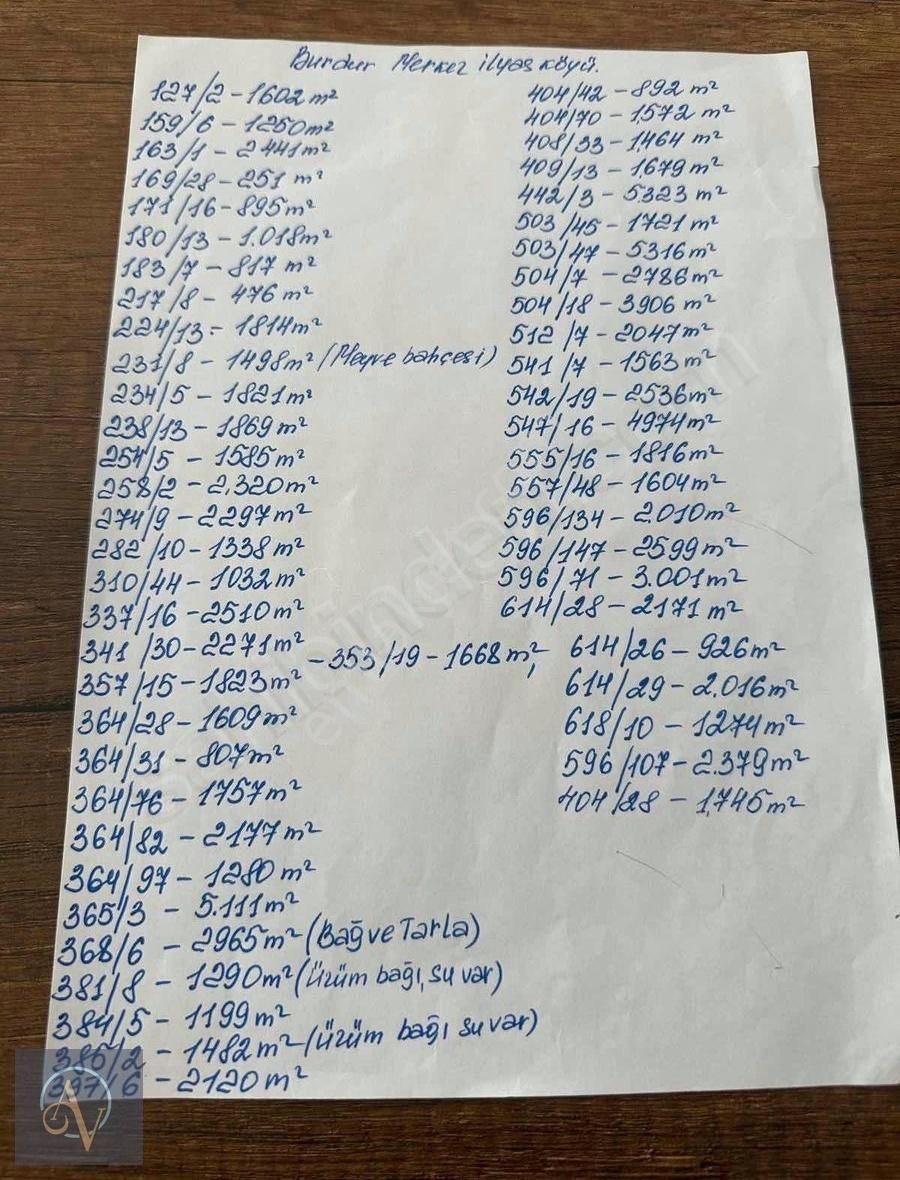 Burdur Merkez ilyas köyü.
127/2 - 1602 m²
159/6 - 1250 m²
163/1 - 2441 m²
169/28 - 251 m²
171/16 - 895 m²
180/13 - 1.018 m²
183/7 - 817 m²
217/8 - 476 m²
224/13 - 1814 m²
231/8 - 1498 m² (Meyve bahçesi)
234/5 - 1821 m²
238/13 - 1869 m²
254/5 - 1585 m²
258/2 - 2.320 m²
274/9 - 2297 m²
282/10 - 1338 m²
310/44 - 1032 m²
337/16 - 2510 m²
341/30 - 2271 m²
357/15 - 1823 m² - 353/19 - 1668 m²,
364/28 - 1609 m²
364/31 - 807 m²
364/76 - 1757 m²
364/82 - 2177 m²
364/97 - 1280 m²
365/3 - 5.111 m²
368/6 - 2965 m² (Bağ ve Tarla)
381/8 - 1290 m² (Üzüm bağı, su var)
384/5 - 1199 m²
385/2 - 1482 m² (Üzüm bağı su var)
397/6 - 2120 m²
404/42 - 892 m²
404/70 - 1.572 m²
408/33 - 1.464 m²
409/13 - 1.679 m²
442/3 - 5.323 m²
503/45 - 1721 m²
503/47 - 5316 m²
504/7 - 2786 m²
504/18 - 3906 m²
512/7 - 2047 m²
541/7 - 1563 m²
542/19 - 2536 m²
547/16 - 4974 m²
555/16 - 1816 m²
557/48 - 1604 m²
596/134 - 2.010 m²
596/147 - 2599 m²
596/71 - 3.001 m²
614/28 - 2171 m²
614/26 - 926 m²
614/29 - 2.016 m²
618/10 - 1274 m²
596/107 - 2.379 m²
404/28 - 1,745 m²
AV